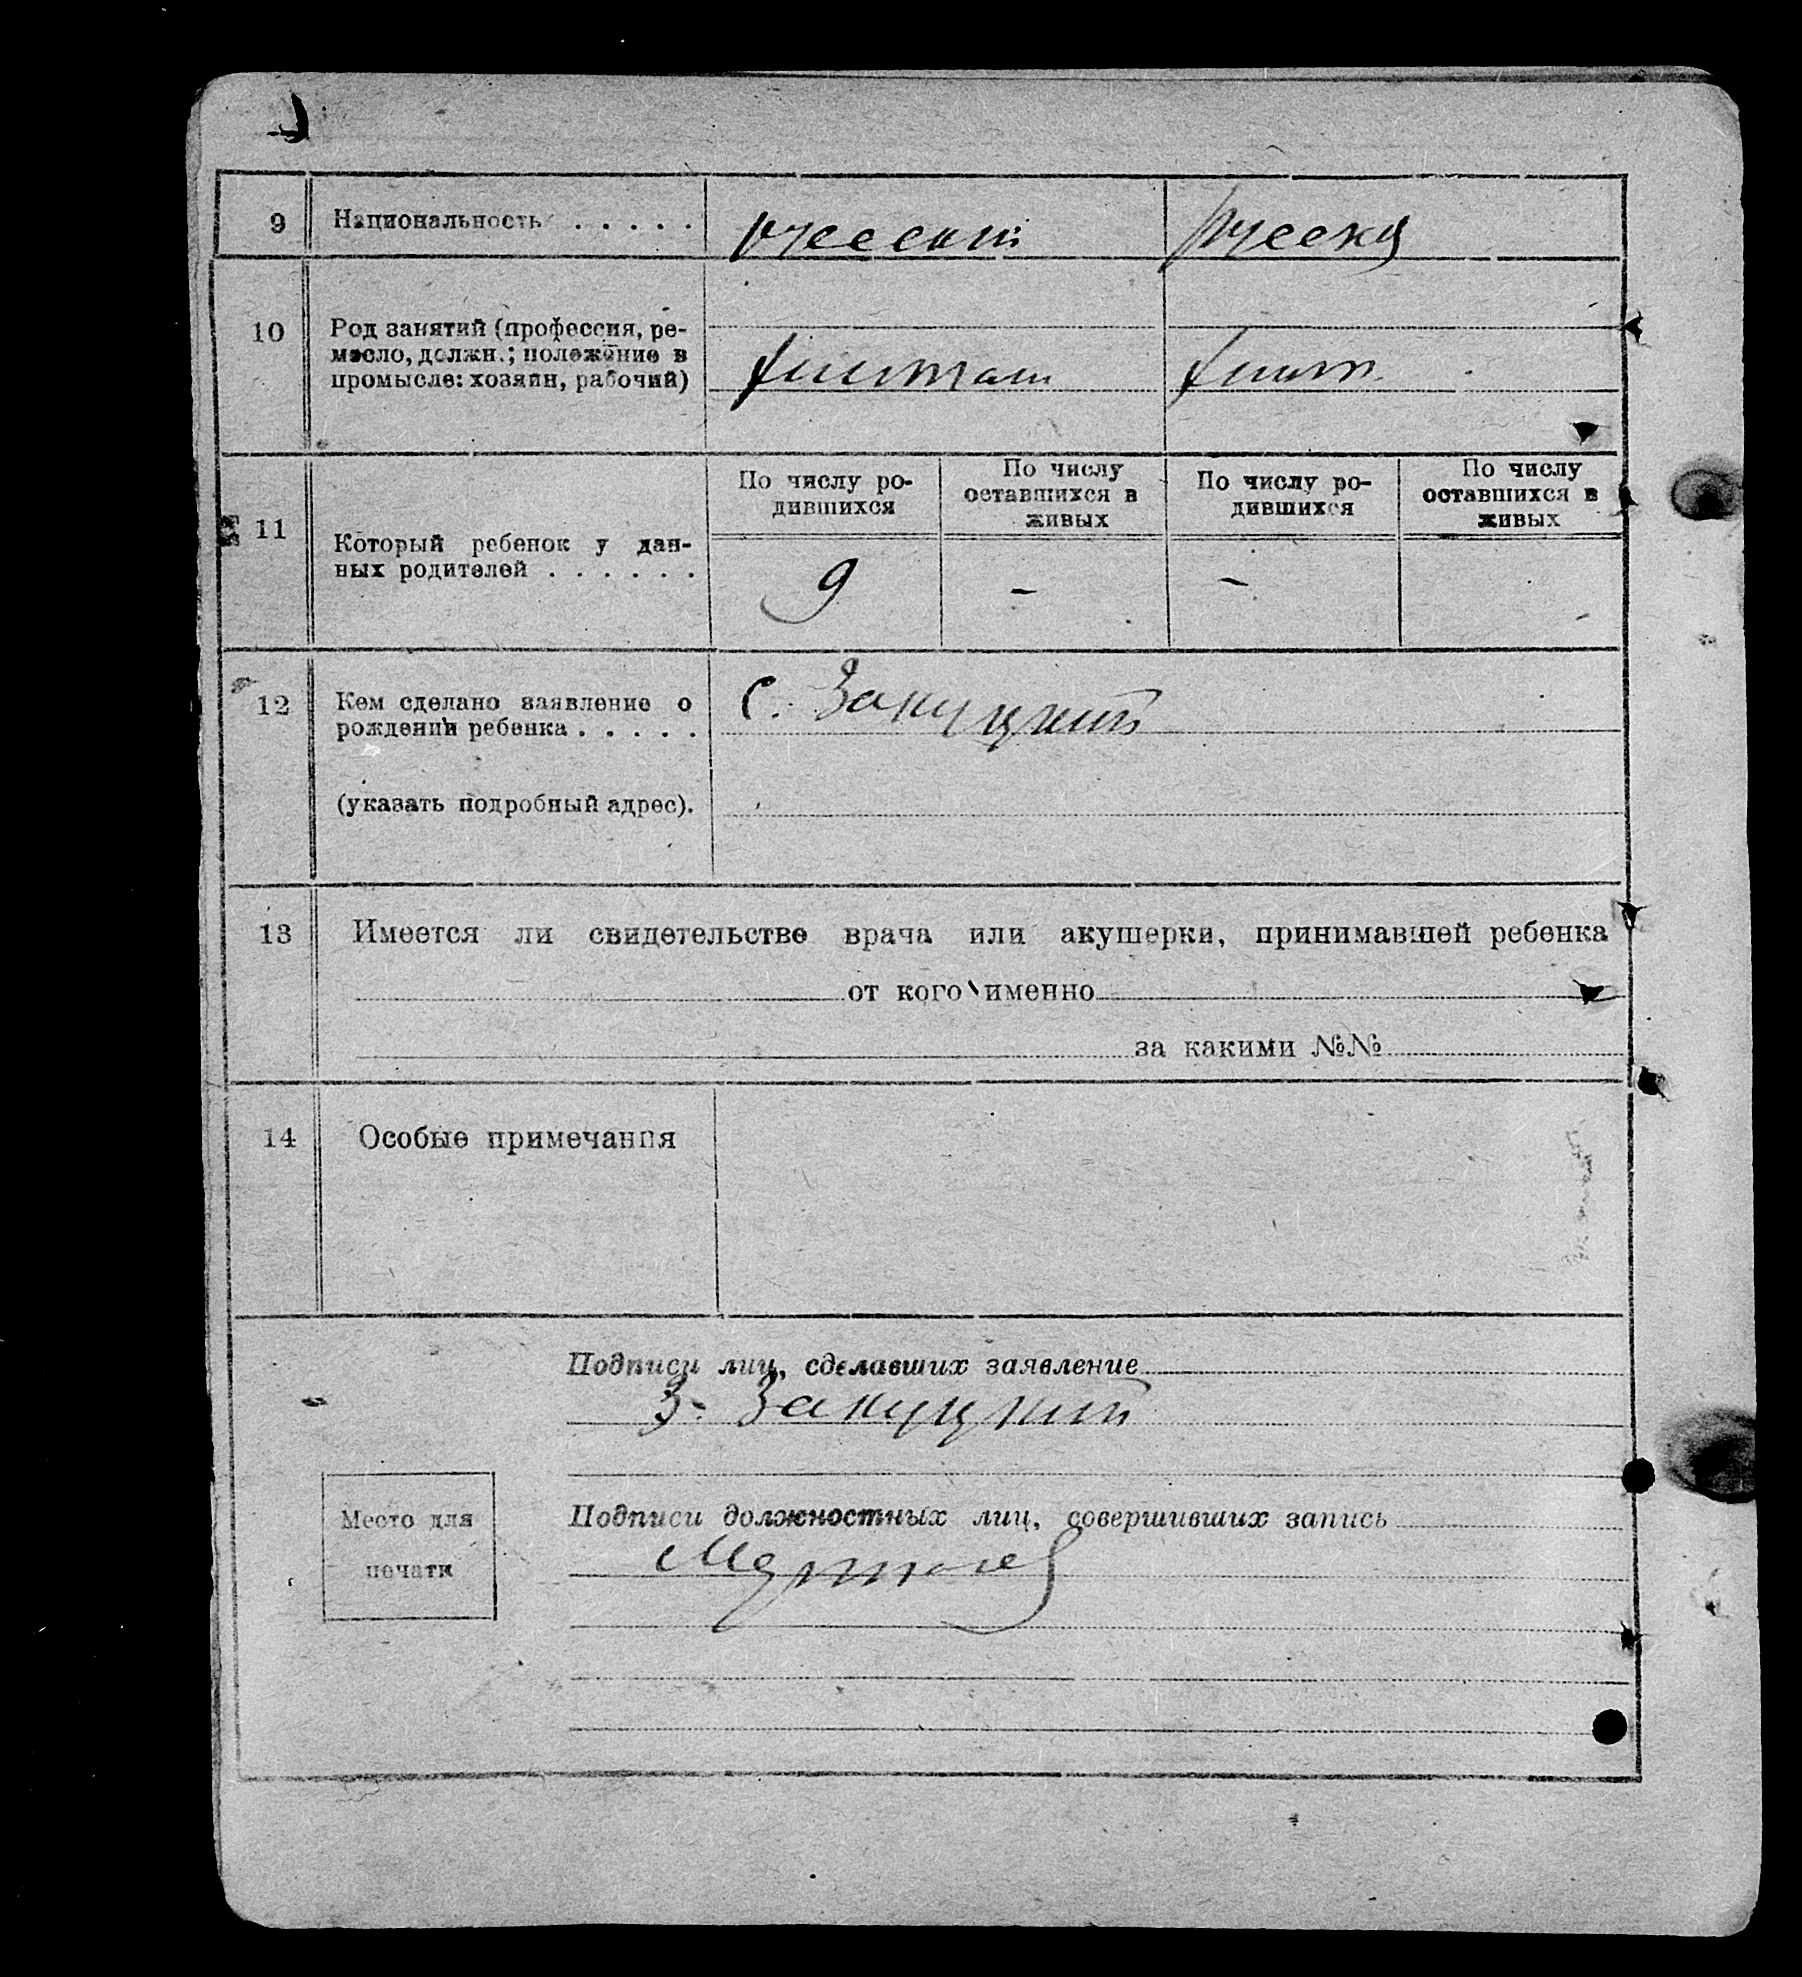 9 Национальность . . . . . русский русская
10 Род занятий (профессия, ре-
месло, должн.; положение в
промысле: хозяин, рабочий)
По числу ро-
дившихся
По числу
оставшихся в
живых
По числу ро-
дившихся
По числу
оставшихся в
живых
11 Который ребенок у дан-
ных родителей . . . . . .
9 - -
12 Кем сделано заявление о
рождении ребенка . . . . .
С. Закуцкий
(указать подробный адрес).
13 Имеется ли свидетельство врача или акушерки, принимавшей ребенка
от кого именно
за какими №№
14 Особые примечания
Подписи лиц, сделавших заявление
З. Закуцкий
Место для
печати
Подписи должностных лиц, совершивших запись